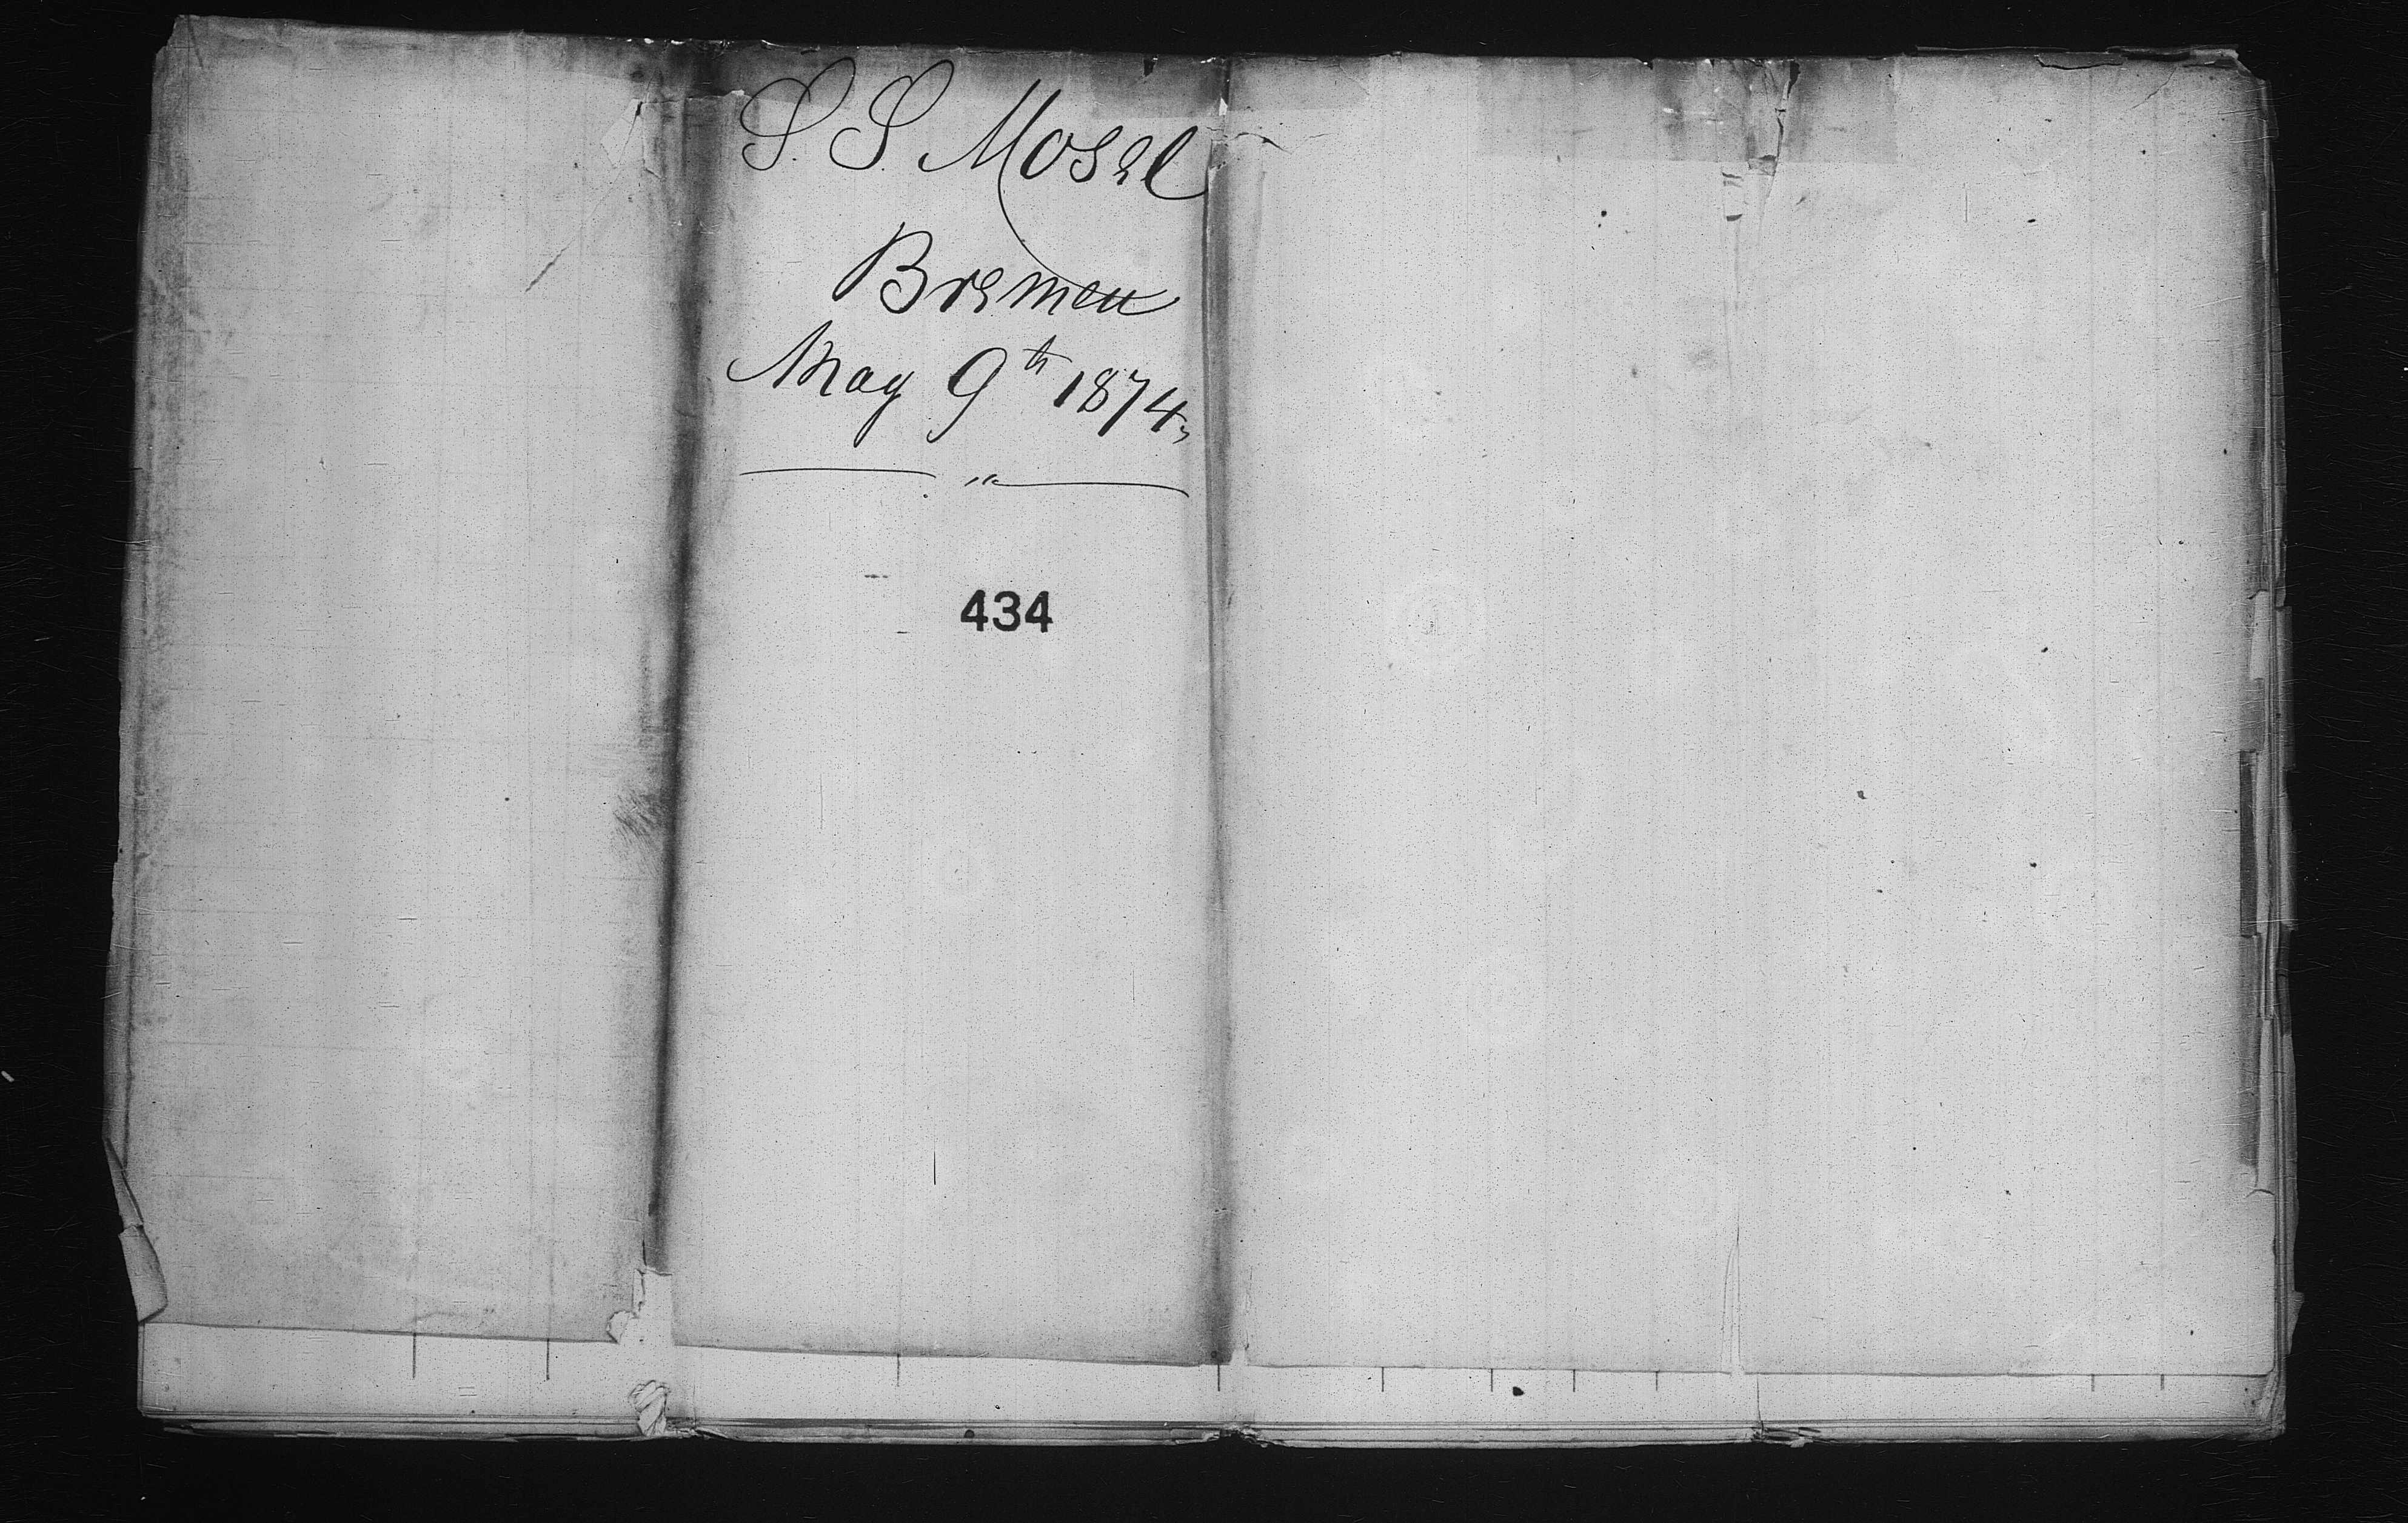 S. S. Mosel
Bremen
May 9th 1874
434